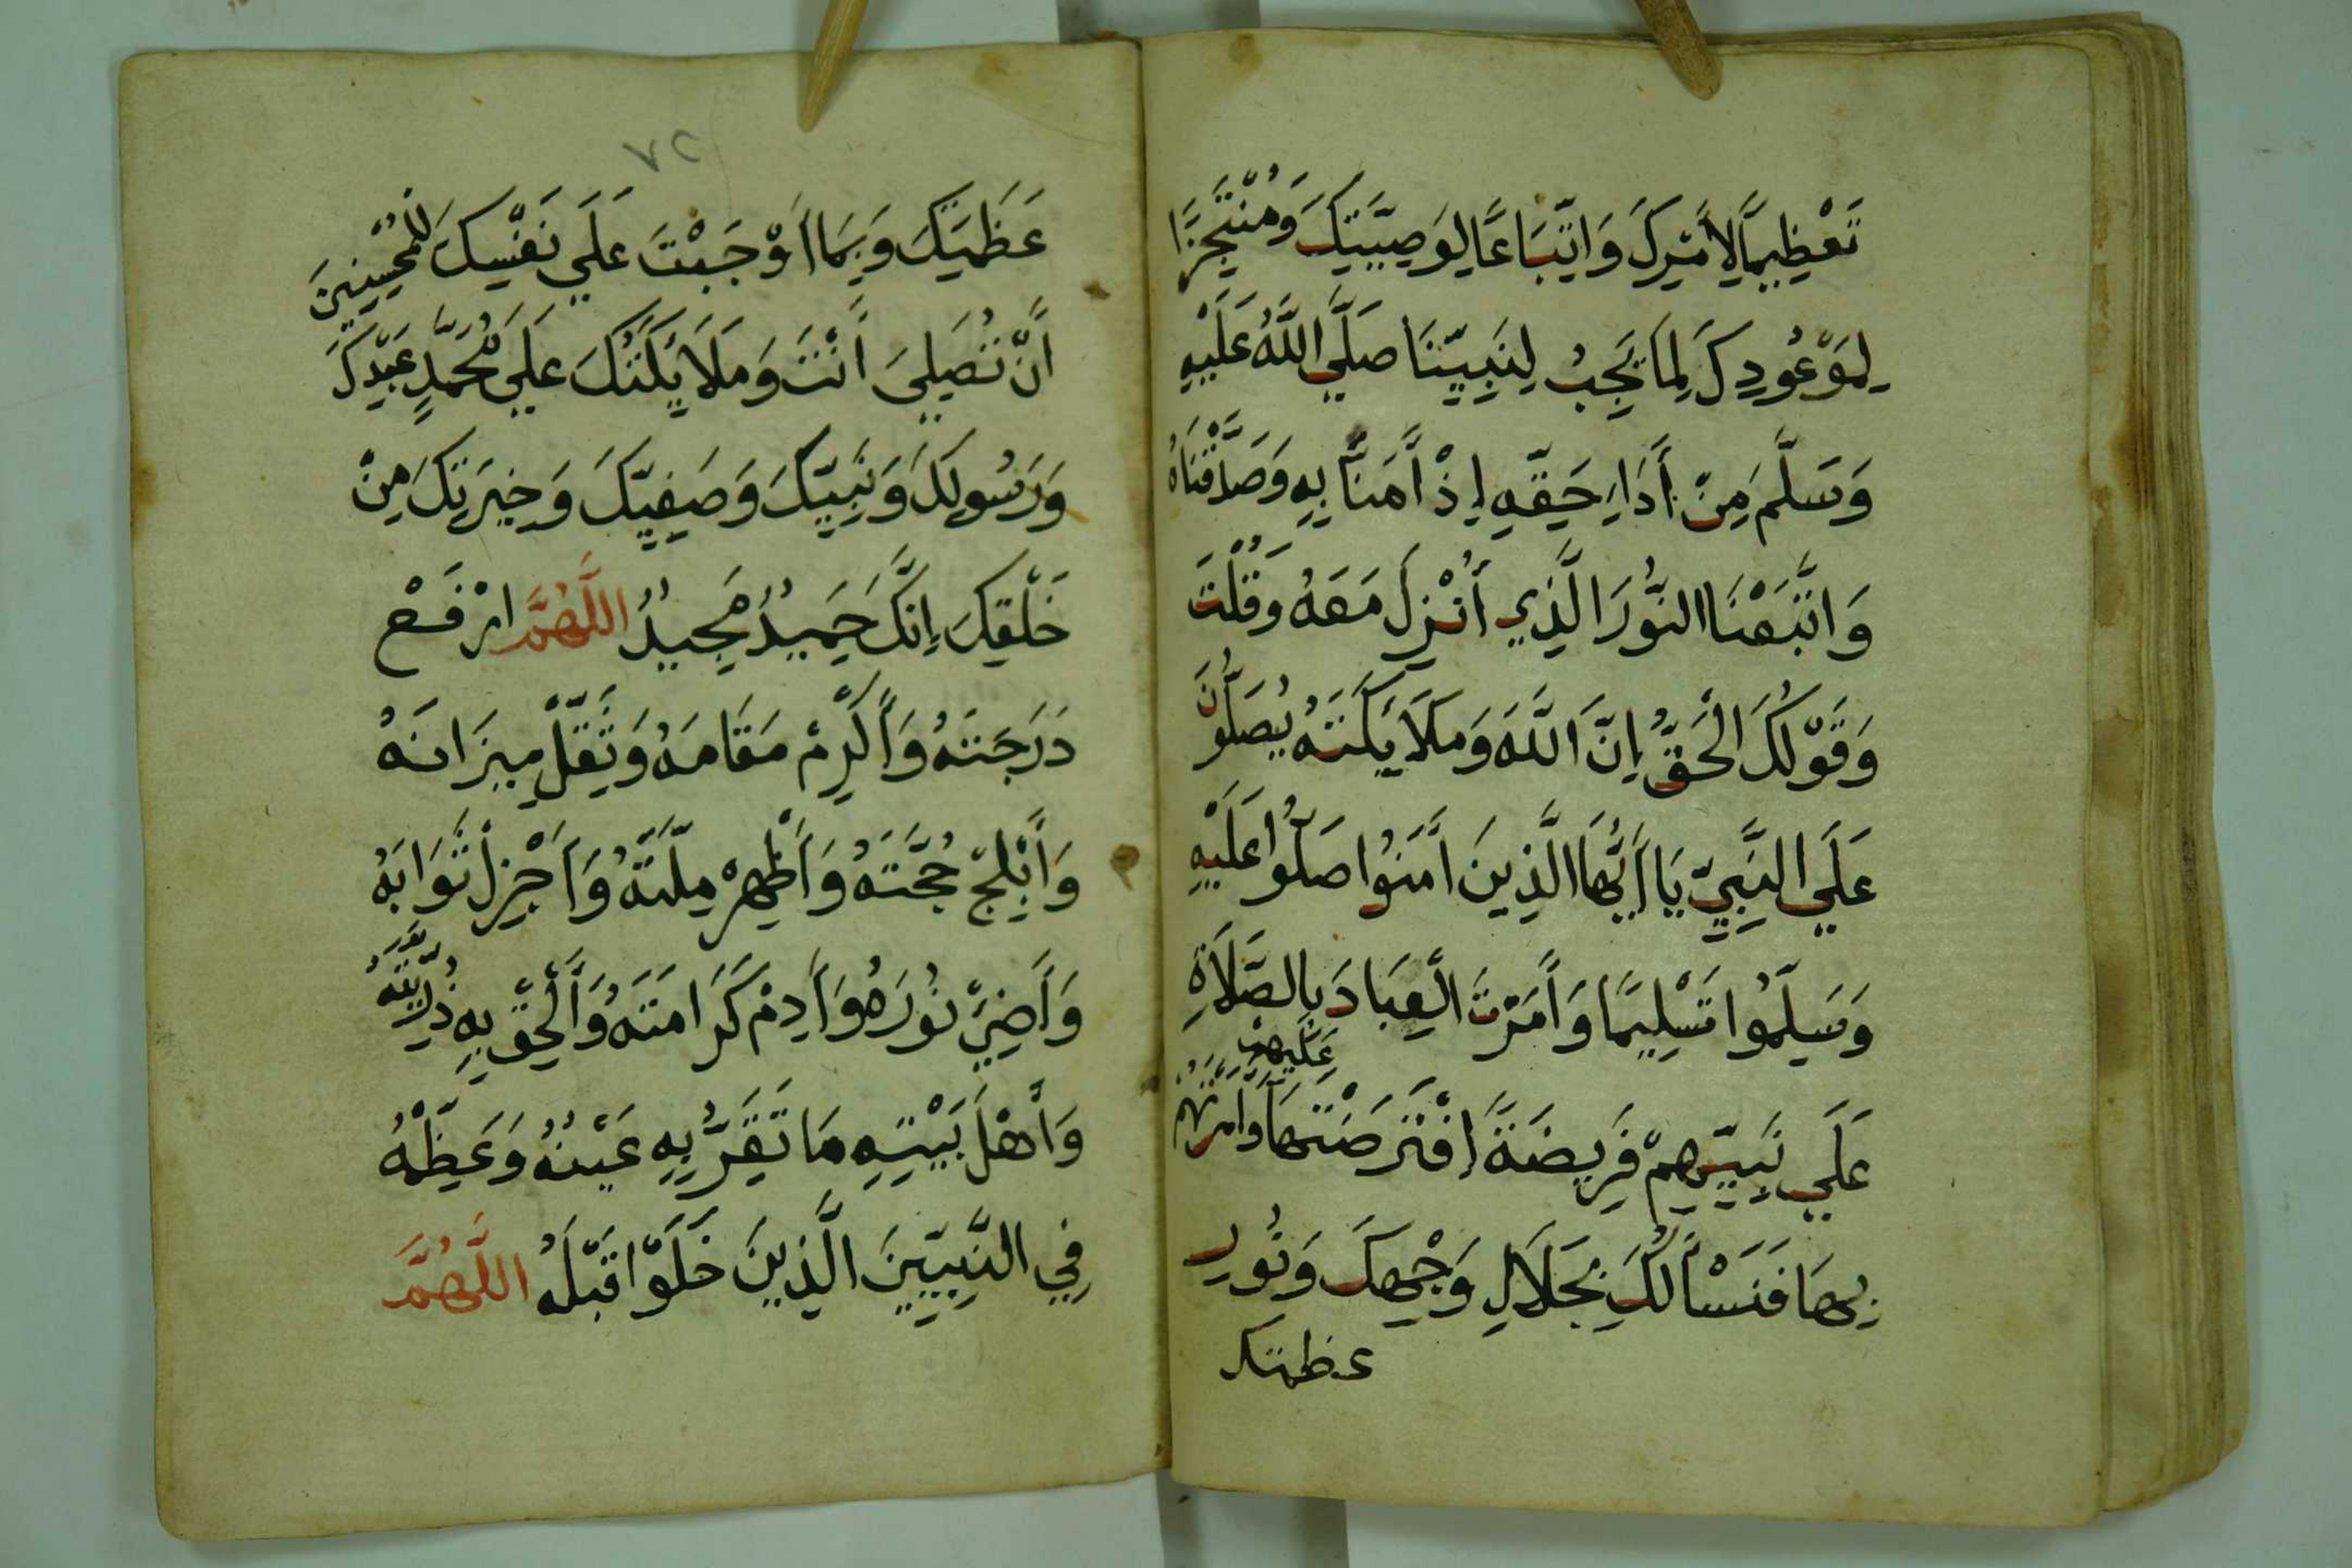 تَعْظِيمًا لِأَمْرِكَ وَاتِّبَاعًا لِوَصِيَّتِكَ وَمُنْتَجِزًا
لِمَوْعُودِكَ لِمَا يَجِبُ لِنَبِيِّنَا صَلَّي اللَّهُ عَلَيْهِ
وَسَلَّمَ مِنْ أَدَاءِ حَقِّهِ إِذْ أَمَنَّا بِهِ وَصَدَّقْنَاهُ
وَاتَّبَعْنَا النُّورَ الَّذِي أُنْزِلَ مَعَهُ وَقُلْتَ
وَقَوْلُكَ الْحَقُّ إِنَّ اللَّهَ وَمَلَايِكَتَهُ يُصَلُّونَ
عَلَي النَّبِيِّ يَا أَيُّهَا الَّذِينَ أَمَنُوا صَلُّوا عَلَيْهِ
وَسَلِّمُوا تَسْلِيمًا وَأَمَرْتَ الْعِبَادَ بِالصَّلَاةِ
عَلَي نَبِيِّهِمْ فَرِيضَةً افْتَرَضْتَهَا عَلَيْهِمْ وَأَمَرْتَهُمْ
بِهَا فَنَسْأَلُكَ بِجَلَالِ وَجْهِكَ وَنُورِ
عظمتك
٧٢
عَظَمَتِكَ وَبِمَا أَوْجَبْتَ عَلَي نَفْسِكَ لِلْمُحْسِنِينَ
أَنْ تُصَلِّيَ أَنْتَ وَمَلَايِكَتُكَ عَلَي مُحَمَّدٍ عَبْدِكَ
وَرَسُولِكَ وَنَبِيِّكَ وَصَفِيِّكَ وَخِيرَتِكَ مِنْ
خَلْقِكَ إِنَّكَ حَمِيدٌ مَجِيدٌ اللَّهُمَّ ارْفَعْ
دَرَجَتَهُ وَأَكْرِمْ مَقَامَهُ وَثَقِّلْ مِيزَانَهُ
وَأَبْلِجْ حُجَّتَهُ وَأَظْهِرْ مِلَّتَهُ وَأَجْزِلْ ثَوَابَهُ
وَأَضِئْ نُورَهُ وَأَدِمْ كَرَامَتَهُ وَأَلْحِقْ بِهِ ذُرِّيَّتَهُ
وَأَهْلَ بَيْتِهِ مَا تَقَرُّ بِهِ عَيْنُهُ وَعَظِّمْهُ
فِي النَّبِيِّينَ الَّذِينَ خَلَوْا قَبْلَهُ اللَّهُمَّ